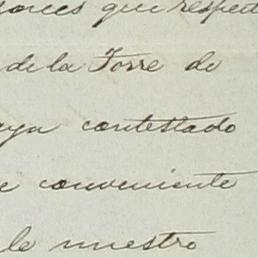 que respect
de la Torre de
aya contestado
e conveniente
le nuestro